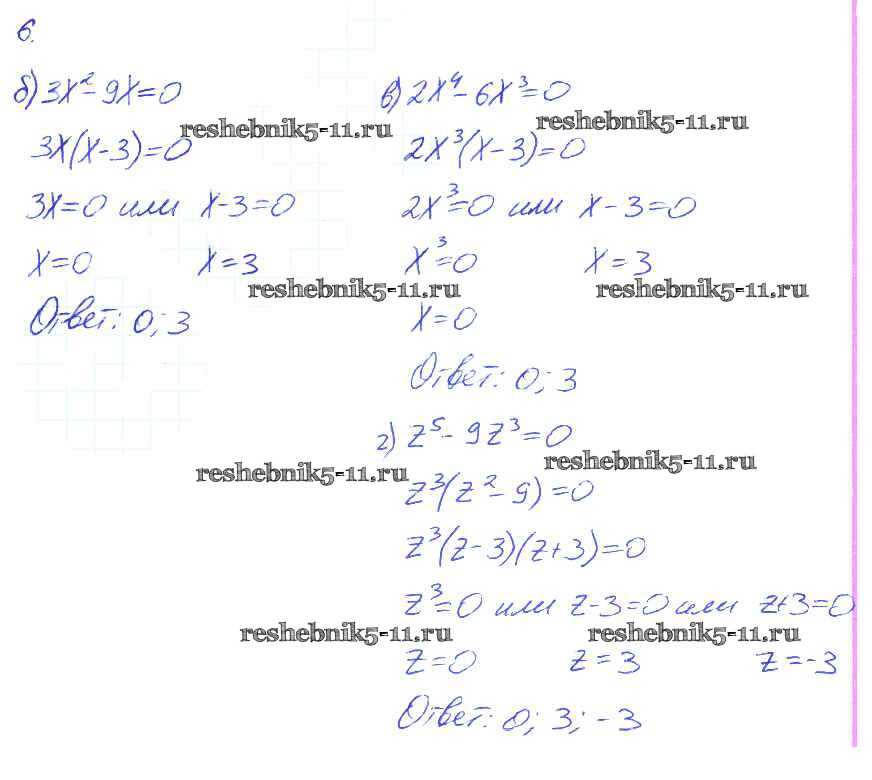 6.
б) 3x² - 9x = 0
3x(x - 3) = 0
3x = 0 или x - 3 = 0
x = 0 x = 3
Ответ: 0; 3
в) 2x⁴ - 6x³ = 0
2x³(x - 3) = 0
2x³ = 0 или x - 3 = 0
x³ = 0 x = 3
x = 0
Ответ: 0; 3
г) z⁵ - 9z³ = 0
z³(z² - 9) = 0
z³(z - 3)(z + 3) = 0
z³ = 0 или z - 3 = 0 или z + 3 = 0
z = 0 z = 3 z = -3
Ответ: 0; 3; -3
reshebnik5-11.ru
reshebnik5-11.ru
reshebnik5-11.ru
reshebnik5-11.ru
reshebnik5-11.ru
reshebnik5-11.ru
reshebnik5-11.ru
reshebnik5-11.ru